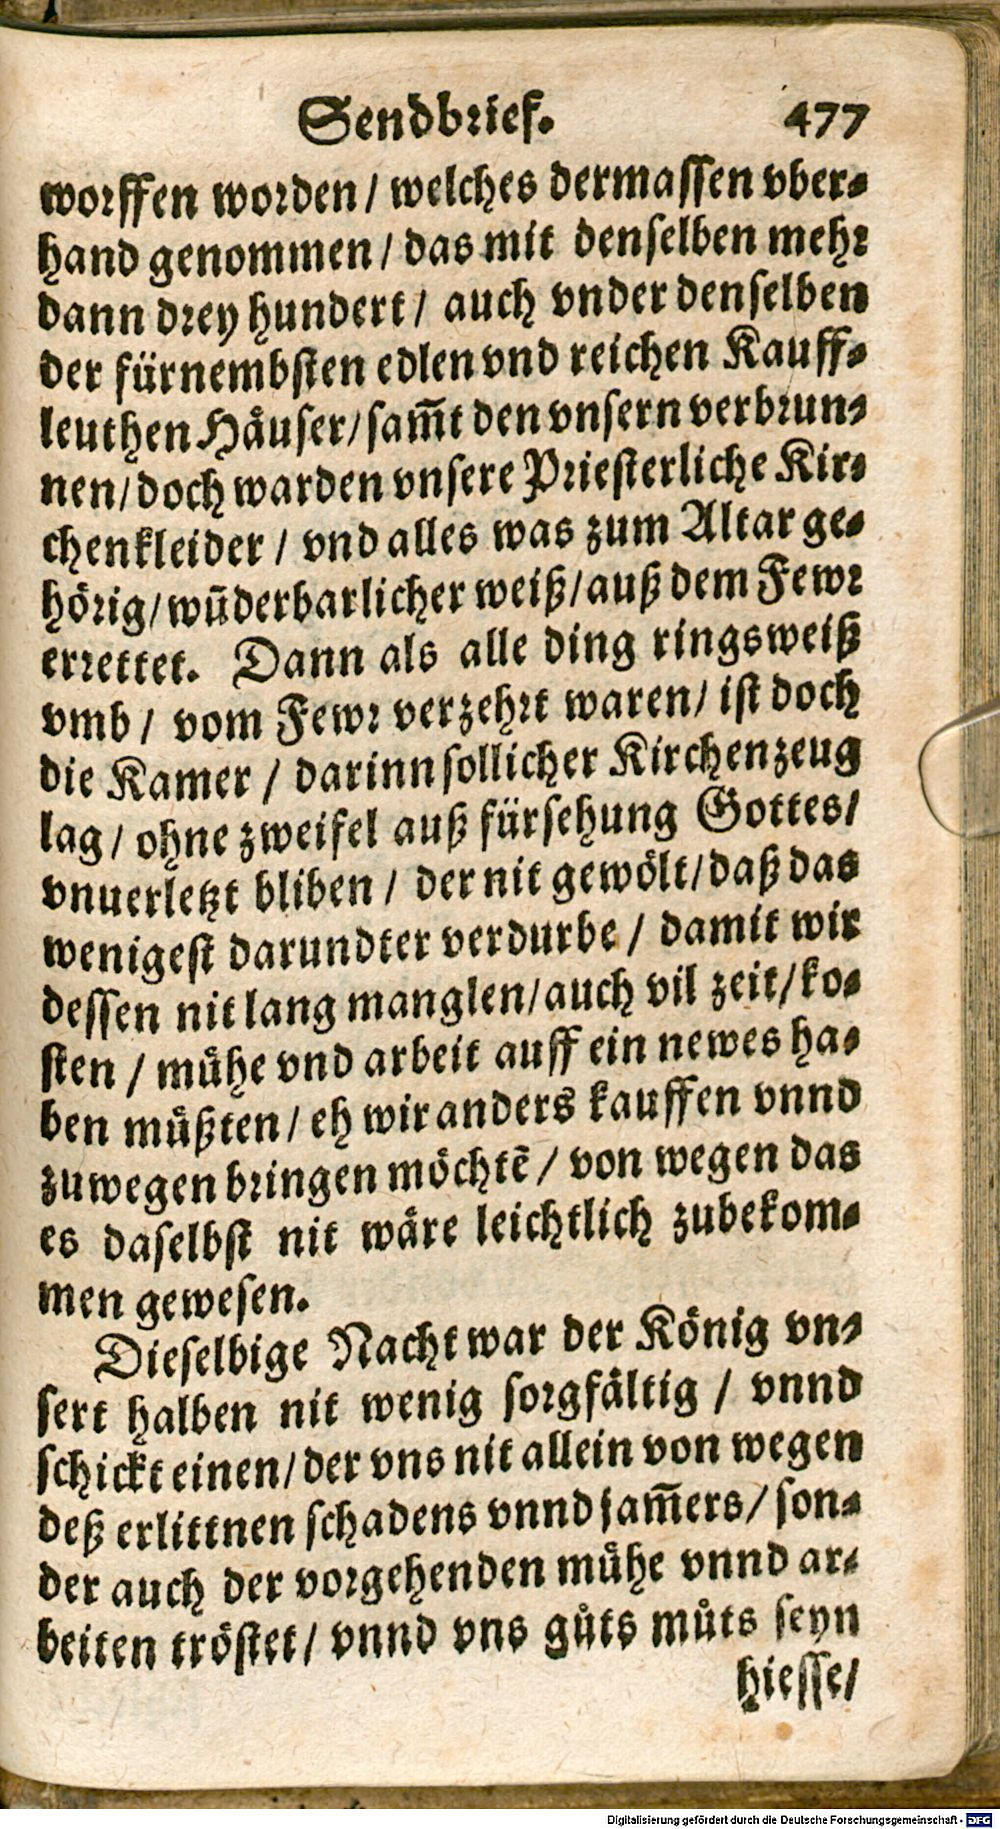 Sendbrief. 477
worffen worden / welches dermassen vber-
hand genommen / das mit denselben mehr
dann drey hundert / auch vnder denselben
der fürnembsten edlen vnd reichen Kauff-
leuthen Häuser / sam̄t den vnsern verbrun-
nen / doch warden vnsere Priesterliche Kir-
chenkleider / vnd alles was zum Altar ge-
hörig / wūderbarlicher weiß / auß dem Fewr
errettet. Dann als alle ding ringsweiß
vmb / vom Fewr verzehrt waren / ist doch
die Kamer / darinn sollicher Kirchenzeug
lag / ohne zweifel auß fürsehung Gottes /
vnuerletzt bliben / der nit gewölt / daß das
wenigest darundter verdurbe / damit wir
dessen nit lang manglen / auch vil zeit / ko-
sten / mühe vnd arbeit auff ein newes ha-
ben müßten / eh wir anders kauffen vnnd
zuwegen bringen möchtē / von wegen das
es daselbst nit wäre leichtlich zubekom-
men gewesen.
Dieselbige Nacht war der König vn-
sert halben nit wenig sorgfältig / vnnd
schickt einen / der vns nit allein von wegen
deß erlittnen schadens vnnd jam̄ers / son-
der auch der vorgehenden mühe vnnd ar-
beiten tröstet / vnnd vns gůts můts seyn
hiesse /
Digitalisierung gefördert durch die Deutsche Forschungsgemeinschaft - DFG